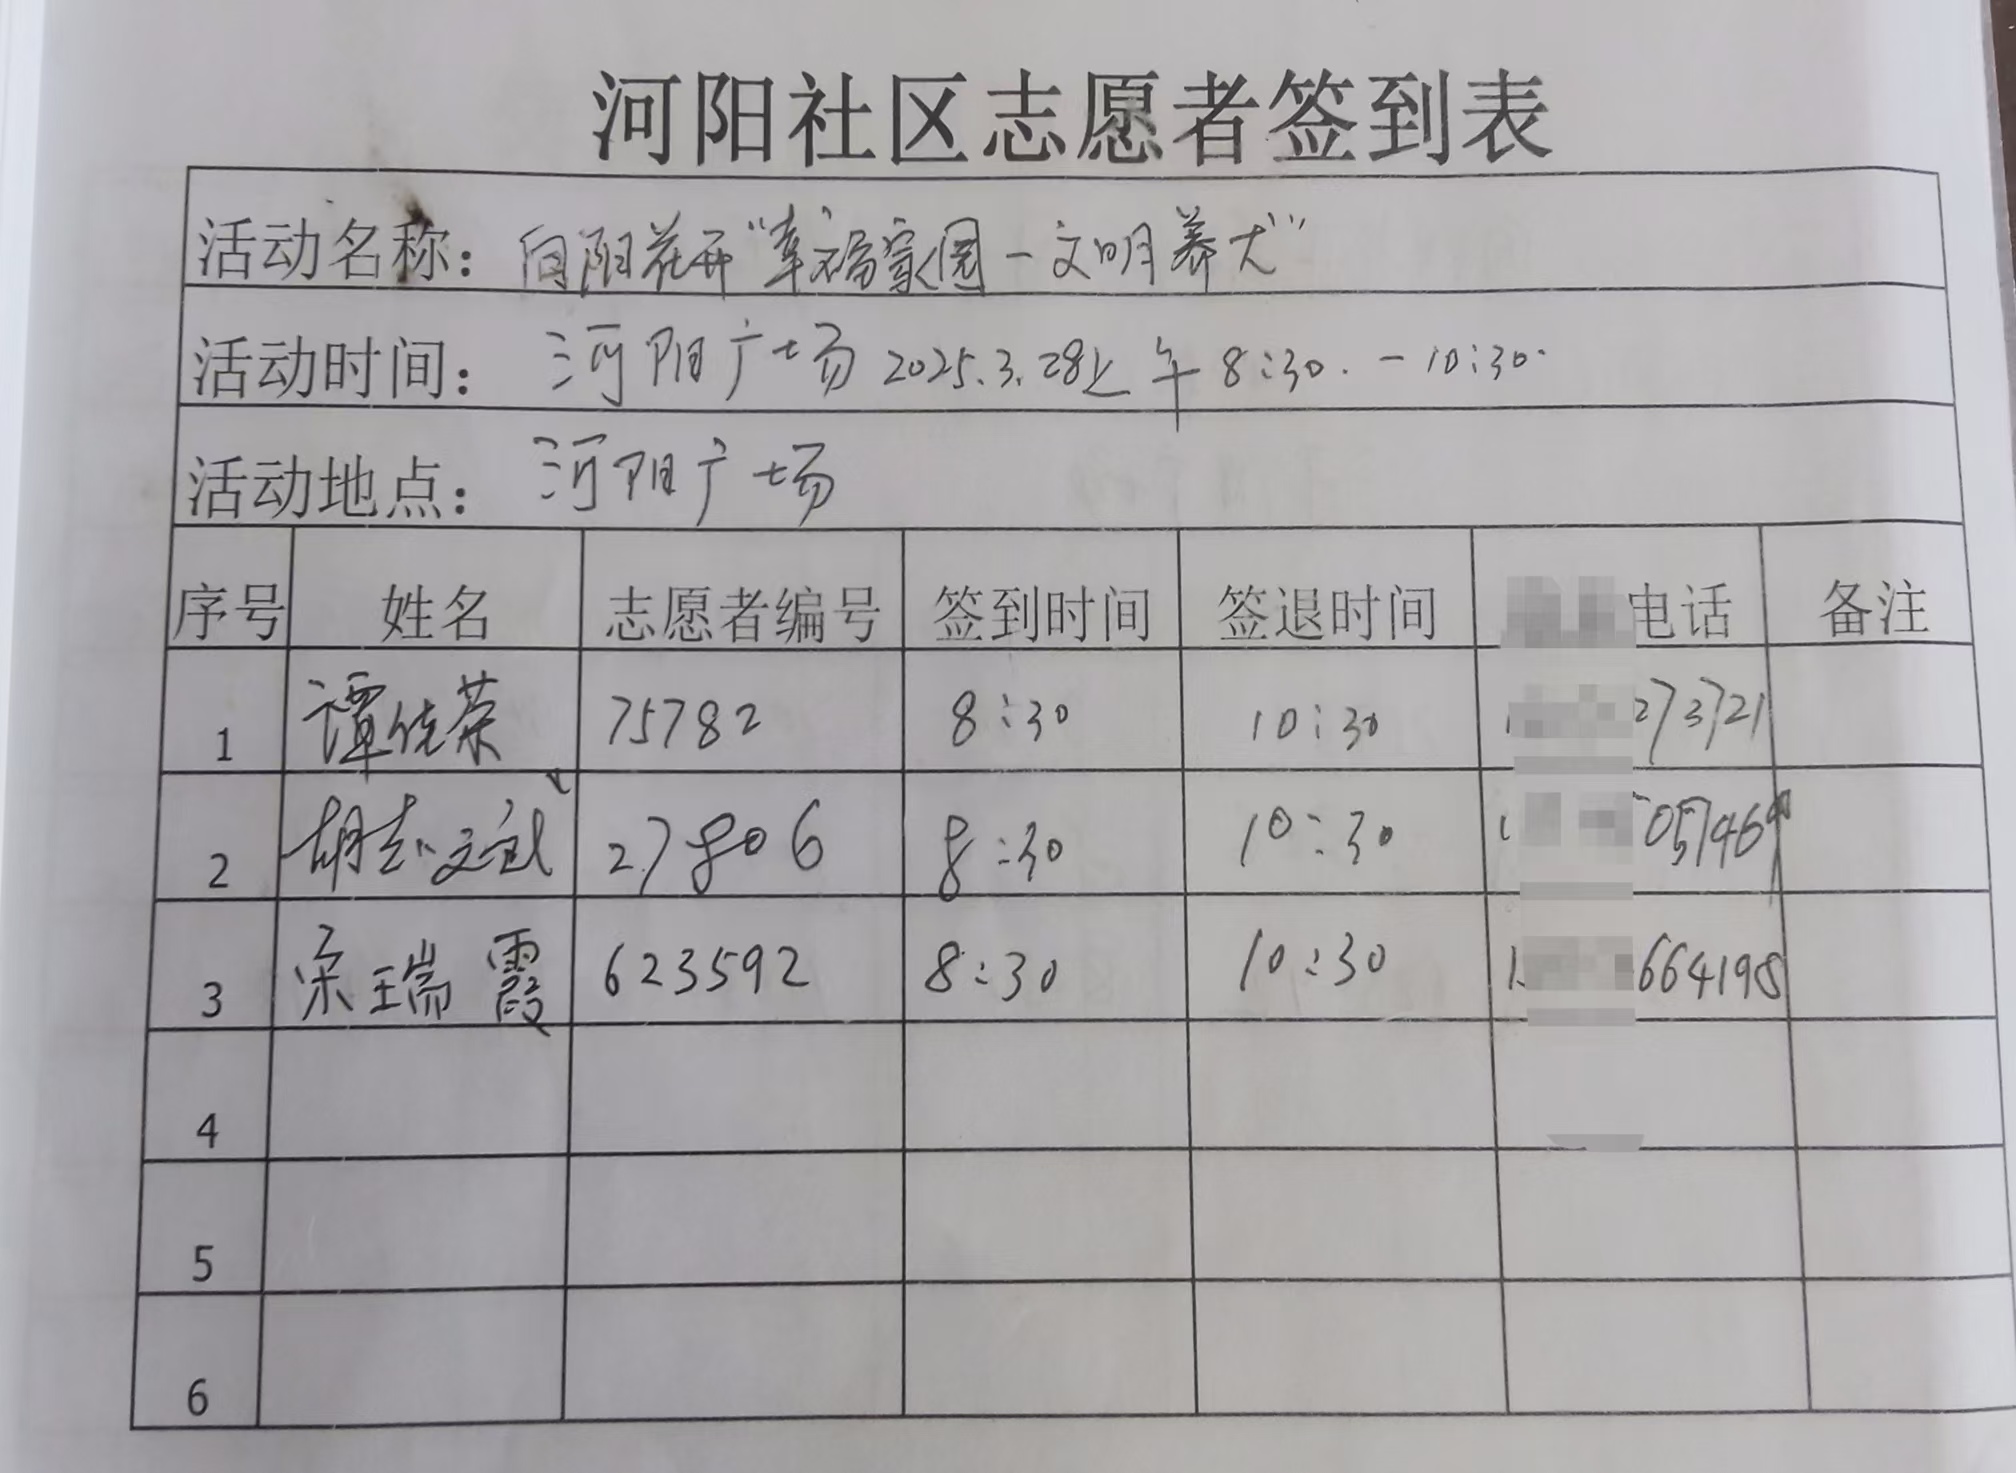 河阳社区志愿者签到表
活动名称：向阳花开“幸福家园－文明养犬”
活动时间：河阳广场 2025.3.28上午 8:30.－10:30.
活动地点：河阳广场
序号 姓名 志愿者编号 签到时间 签退时间 电话 备注
1 谭 荣 75782 8:30 10:30 273721
2 胡志斌 27806 8:30 10:30
3 宋瑞霞 623592 8:30 10:30 664198
4
5
6